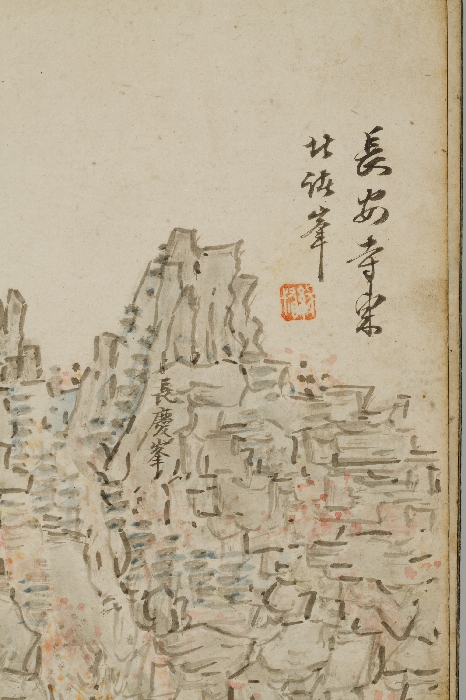 長安寺東
北諸峯
長慶峯